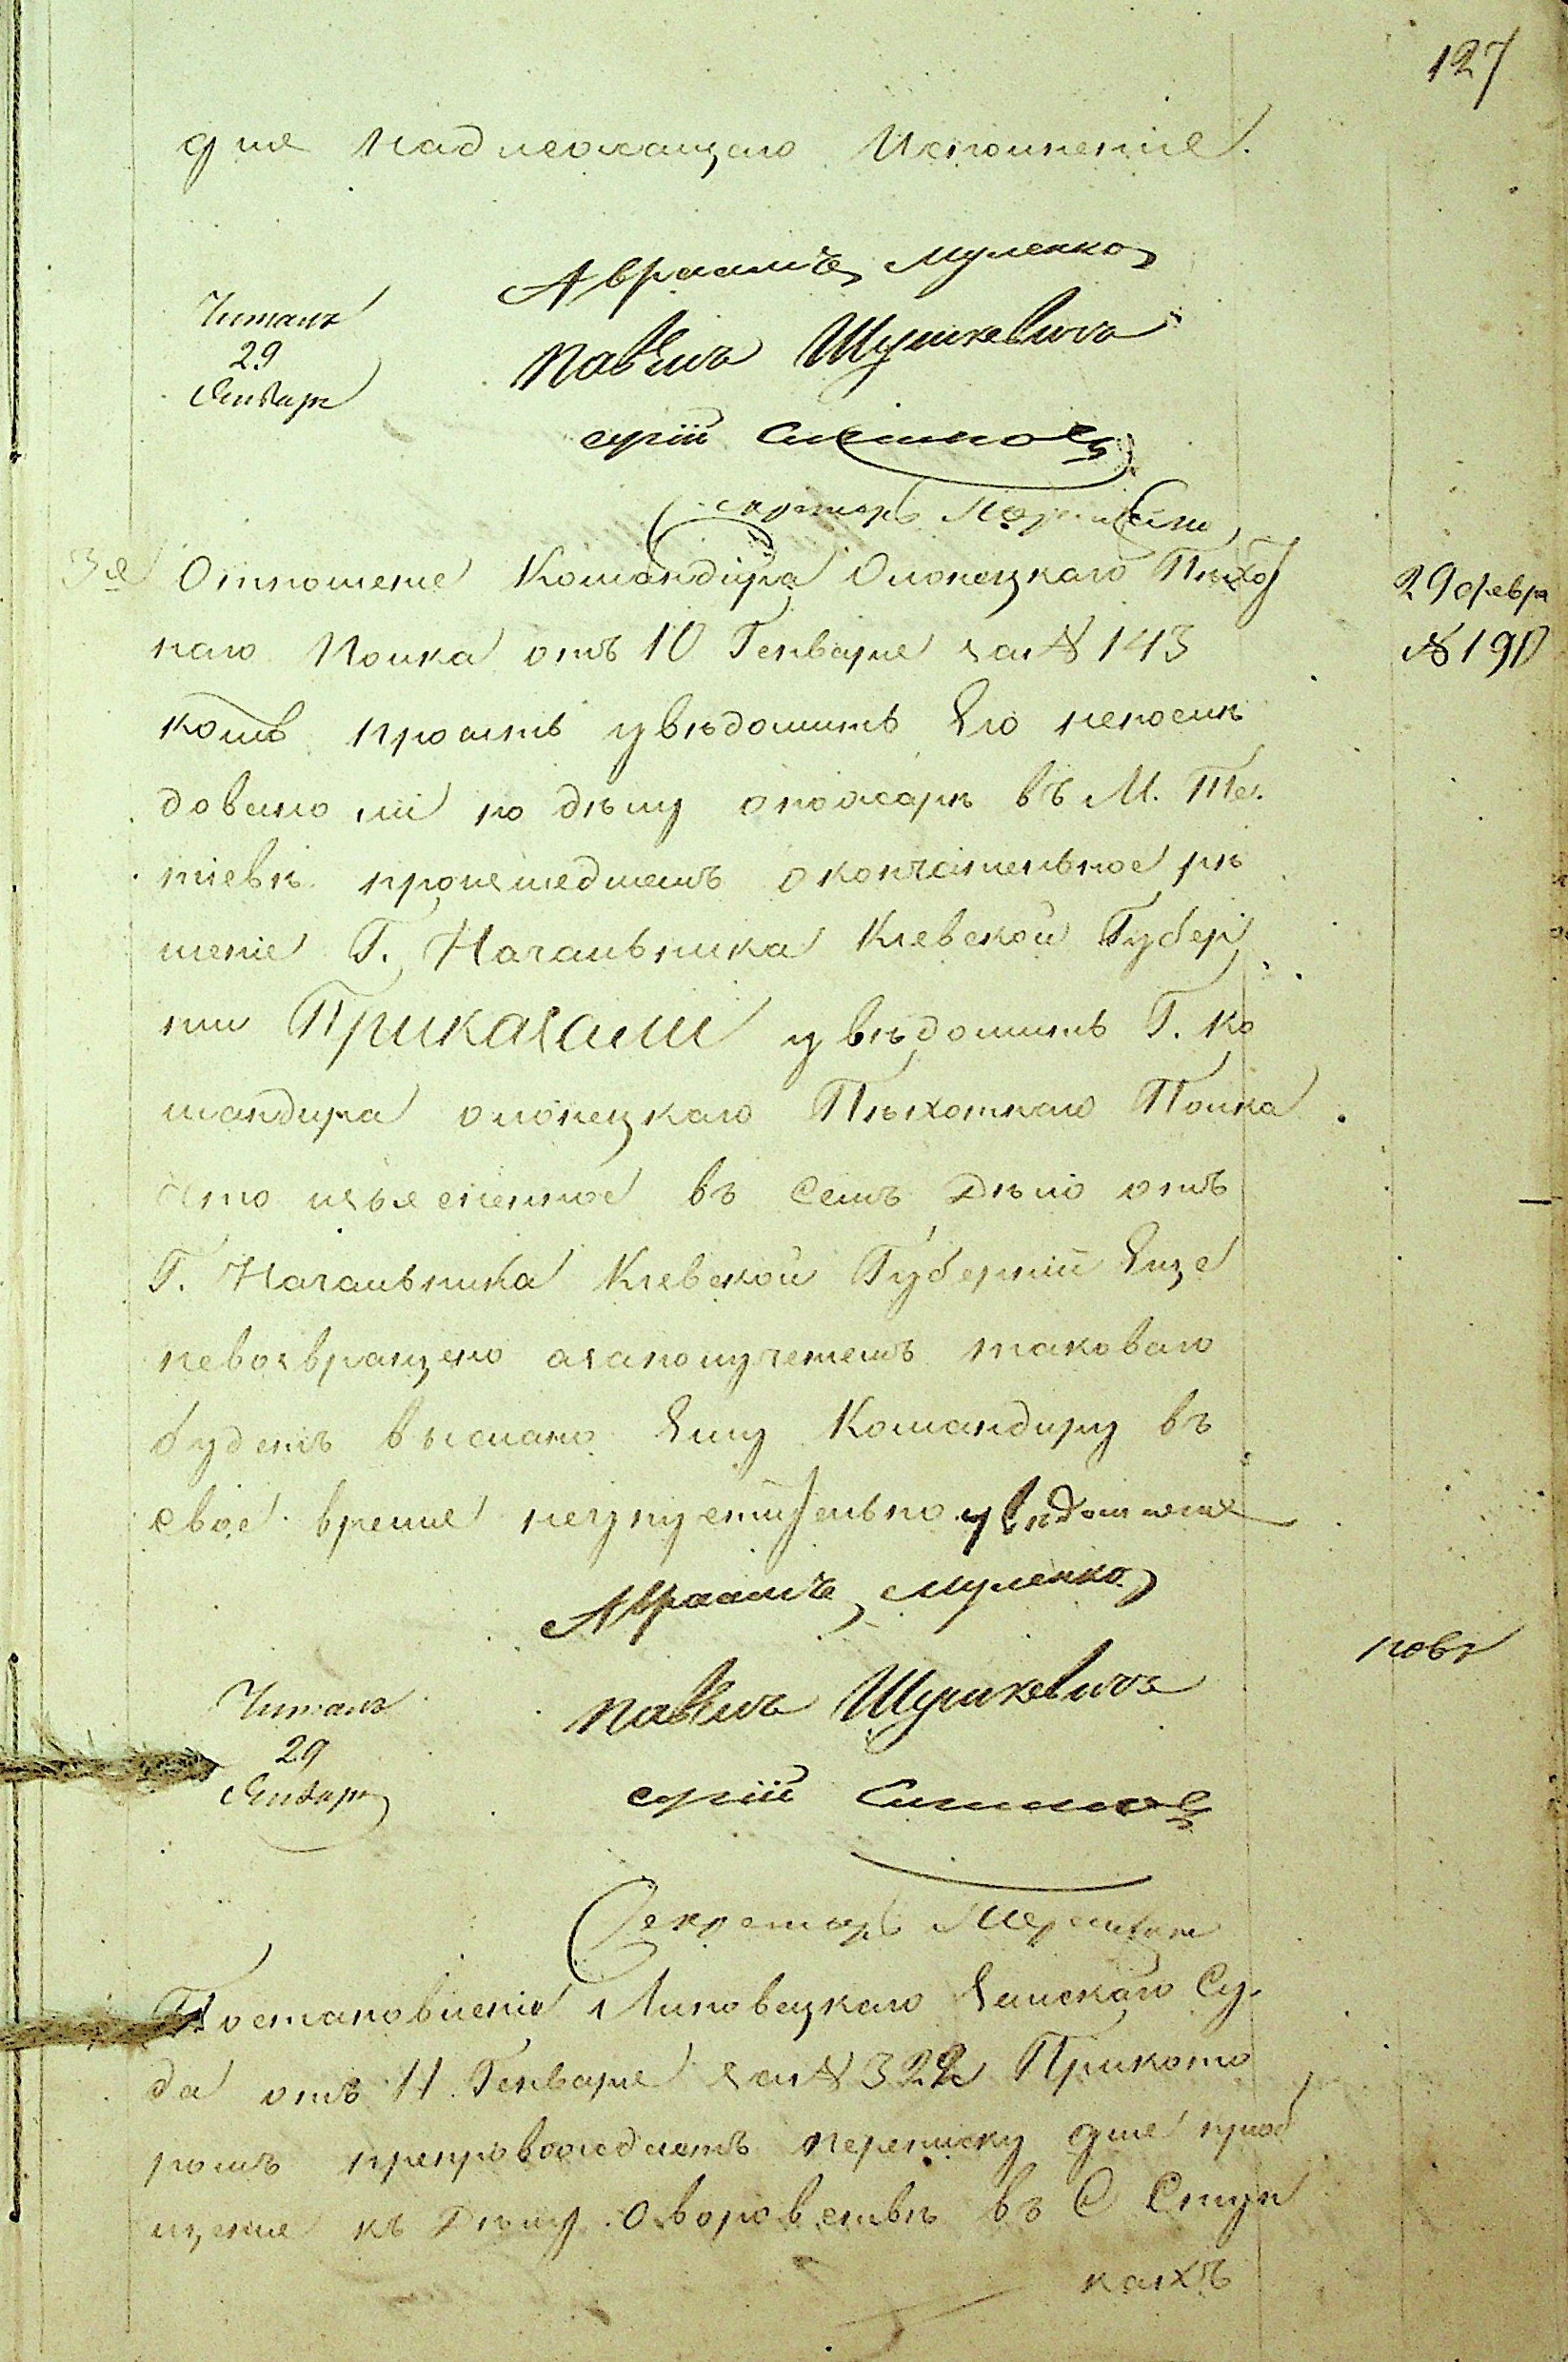 127
для надлежащаго исполненія.
Авраамъ Муленко
Читалъ
29
Январ
Павелъ Шушкевичъ
Секретарь
3е Отношеніе Командира Олонецкаго Пѣхот
наго Полка отъ 10 Генваря за № 143
29 февра
№ 190
коимъ проситъ увѣдомить Его непослѣ
довало ли по дѣлу опожарѣ въ М. Те.
тіевѣ произшедшемъ окончательное рѣ
шеніе Г. Начальника Кіевской Губер
ніи Приказали увѣдомить Г. Ко
мандира Олонецкаго Пѣхотнаго Полка
что изъясненное въ семъ Дѣло отъ
Г. Начальника Кіевской Губерніи Еще
невозвращено азаполученіемъ таковаго
будетъ выслано Ему Командиру въ
свое время неупустительно увѣдомленіе
Авраамъ Муленко
Читалъ
29
Январ
Павелъ Шушкевичъ
Секретарь
Постановленіе Липовецкаго Земскаго Су.
да отъ 11 Генваря за № 322 Прикото
ромъ препровождаетъ переписку для приоб
щенія къ Дѣлу Оворовствѣ въ С Ступ
кахъ